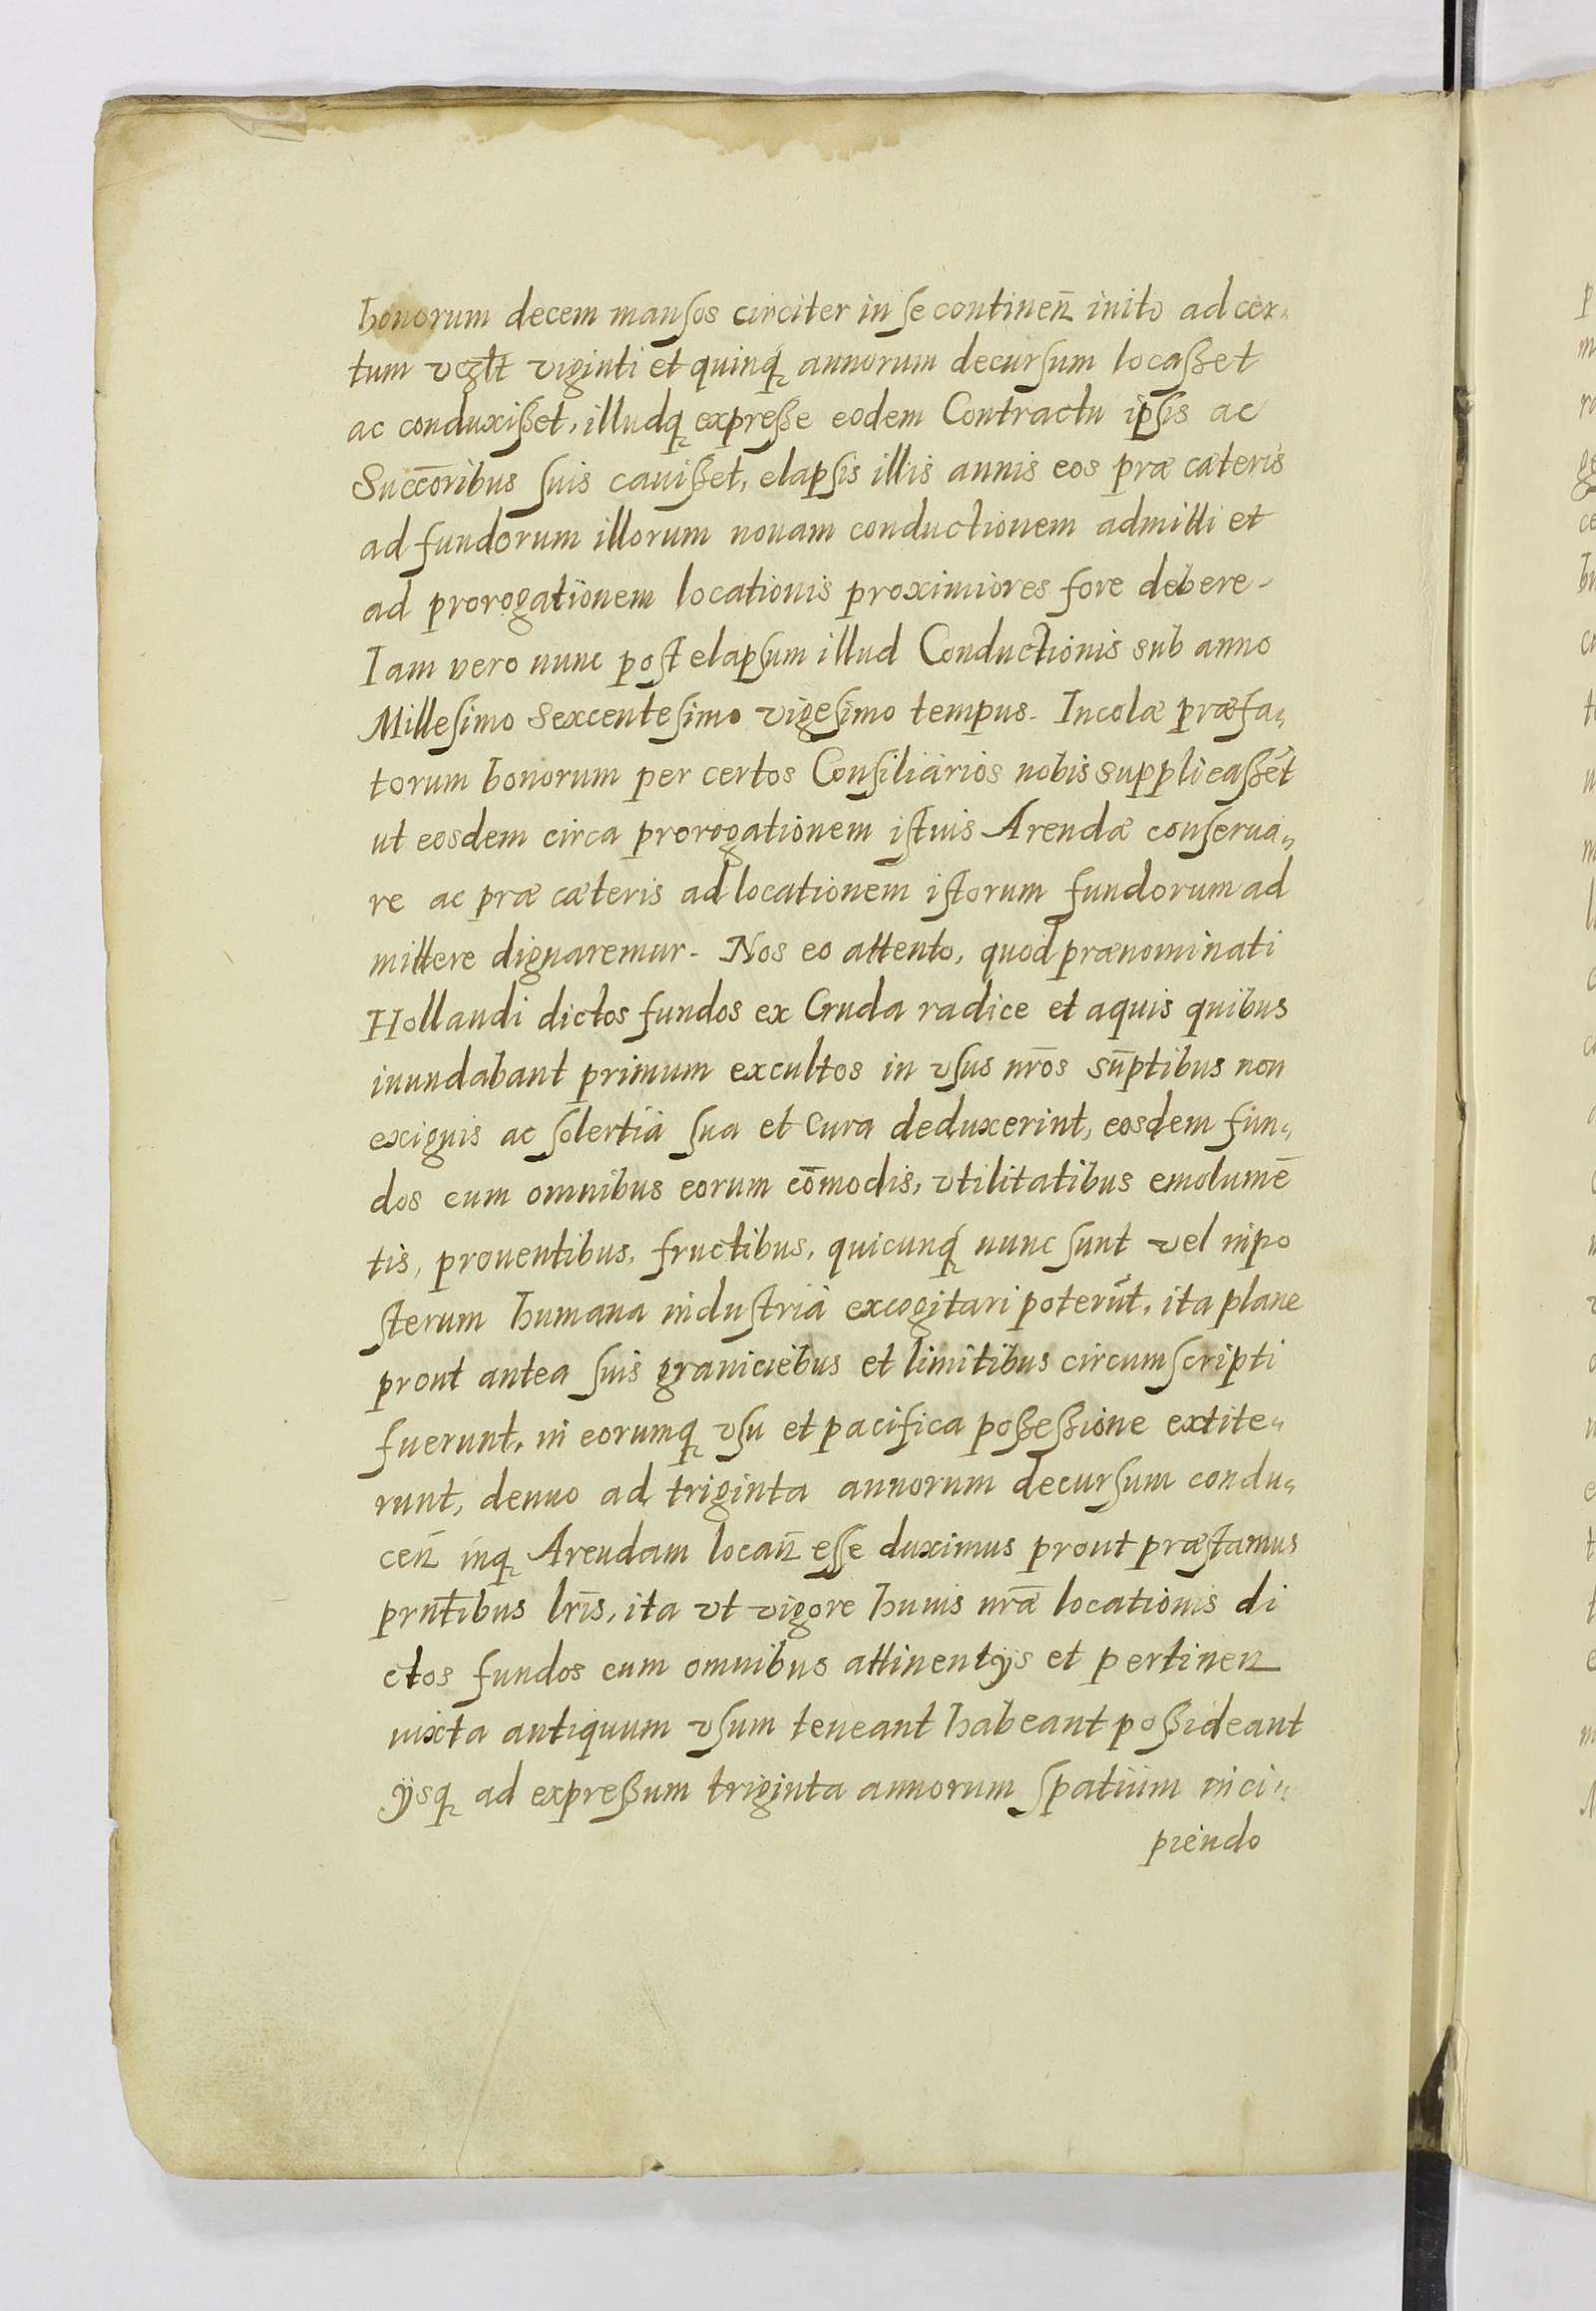 bonorum decem mansos circiter in se continen̄ inito ad cer„
tum vcglt viginti et quinq́ȝ annorum decursum locaßet
ac conduxißet, illudqȝ expreße eodem Contractu ipsis ac
Succ̄oribus suis cauißet, elapsis illis annis eos præ cæteris
ad fundorum illorum nouam conductionem admitti et
ad prorogationem locationis proximiores fore debere.
Iam vero nunc post elapsum illud Conductionis sub anno
Millesimo Sexcentesimo vigesimo tempus. Incolæ præfa„
torum bonorum per certos Consiliarios nobis supplicaßēt
ut eosdem circa prorogationem istius Arendæ conserua„
re ac præ cæteris ad locationem istorum fundorum ad
mittere dignaremur. Nos eo attento, quod prænominati
Hollandi dictos fundos ex Cruda radice et aquis quibus
inundabant primum excultos in vsus nr̄os sūptibus non
exiguis ac solertia sua et cura deduxerint, eosdem fun„
dos cum omnibus eorum cōmodis, vtilitatibus emolumē
tis, prouentibus, fructibus, quicunq́ȝ nunc sunt vel inpo
sterum humana industria excogitari poterūt, ita plane
prout antea suis graniciebus et limitibus circumscripti
fuerunt, in eorumqȝ vsu et pacifica poßeßione extite„
runt, denuo ad triginta annorum decursum condu„
cen̄ inqȝ Arendam locan̄ esse duximus prout præstamus
prn̄tibus lr̄is, ita vt vigore huius nr̄æ locationis di
ctos fundos cum omnibus attinentijs et pertinen
iuxta antiquum vsum teneant habeant poßideant
ijsqȝ ad expreßum triginta annorum spatium inci„
piendo